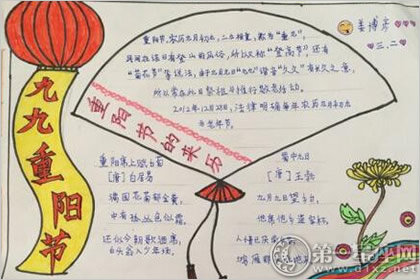 九九重阳节
重阳节的来历
重阳节,农历九月初九,二九相重,称为"重九",
民间在该日有登山的风俗,所以又称"登高节"还有
"菊花节"等说法,由于九月九日"九九"谐音"久久"有长久之意,
所以常在此日祭祖与推行敬老活动。
2012年12月28日,法律明确每年农历九月初九
为老年节。
姜博彦
三、二
重阳席上赋白菊
[唐]白居易
满园花菊郁金黄,
中有孤丛色似霜。
还似今朝歌酒席,
白头翁入少年场。
蜀中九日
[唐]王勃
九月九日望乡台,
他席他乡送客杯。
人情已厌南中苦,
鸿雁那
第一星座网
www.d1xz.net